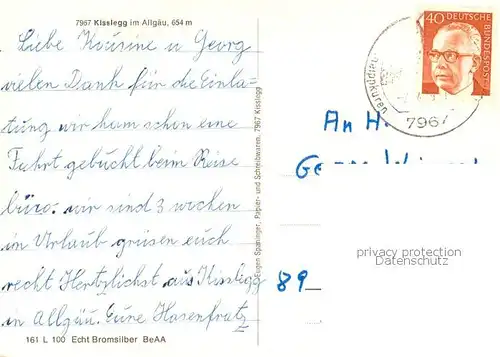 7967 Kisslegg im Allgäu, 654 m
Liebe Kousine u Georg
vielen Dank für die Einla-
tung wir ham schon eine
Fahrt gebucht beim Reise
büro. wir sind 3 wochen
in Urlaub grüsen euch
recht Hertzlichst aus Kissligg
in Allgäu. Eure Hasenfratz
161 L 100 Echt Bromsilber BeAA
Eugen Spanninger, Papier- und Schreibwaren, 7967 Kisslegg
40 DEUTSCHE BUNDESPOST
Kneippkuren
7967
An H.
89
privacy protection
Datenschutz